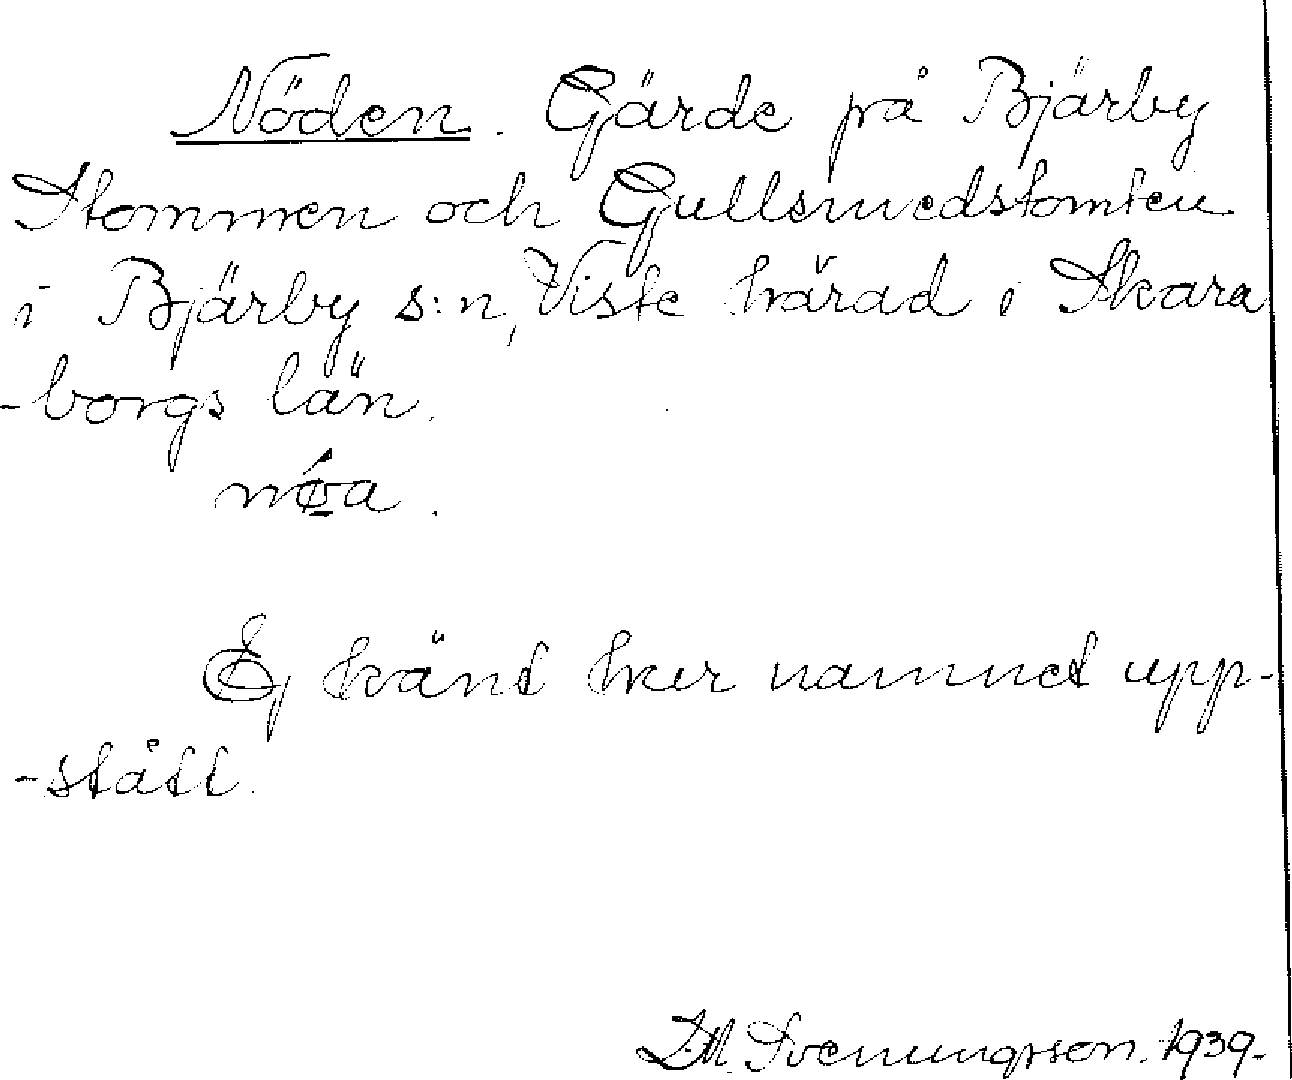 Nöden. Gärde på Bjärby
Stommen och Gullsmedstomten
i Bjärby s:n, Viste härad i Skara
-borgs län.
nǿ̱a.
Ej känt hur namnet upp-
-stått.
D.M. Svenungsson. 1939.